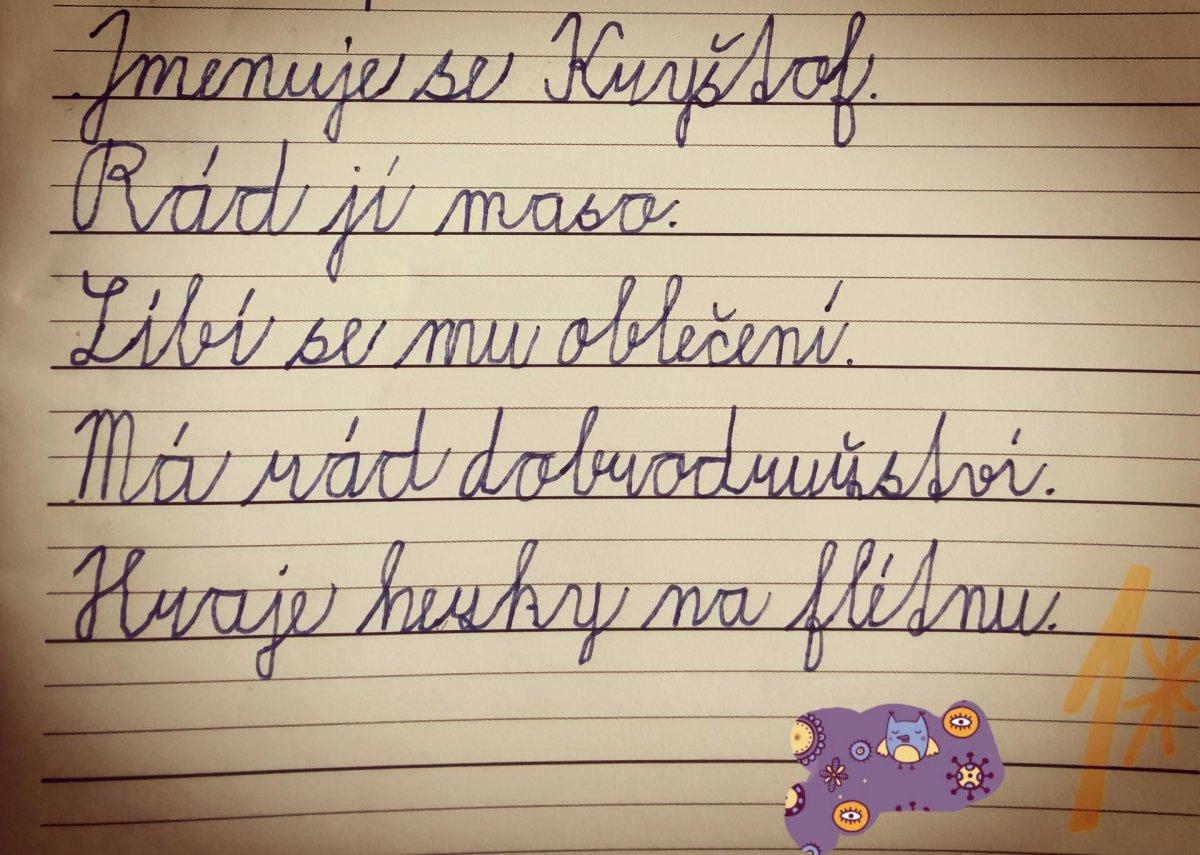 Jmenuje se Kryštof.
Rád jí maso.
Líbí se mu oblečení.
Má rád dobrodružství.
Hraje hezky na flétnu.
1*